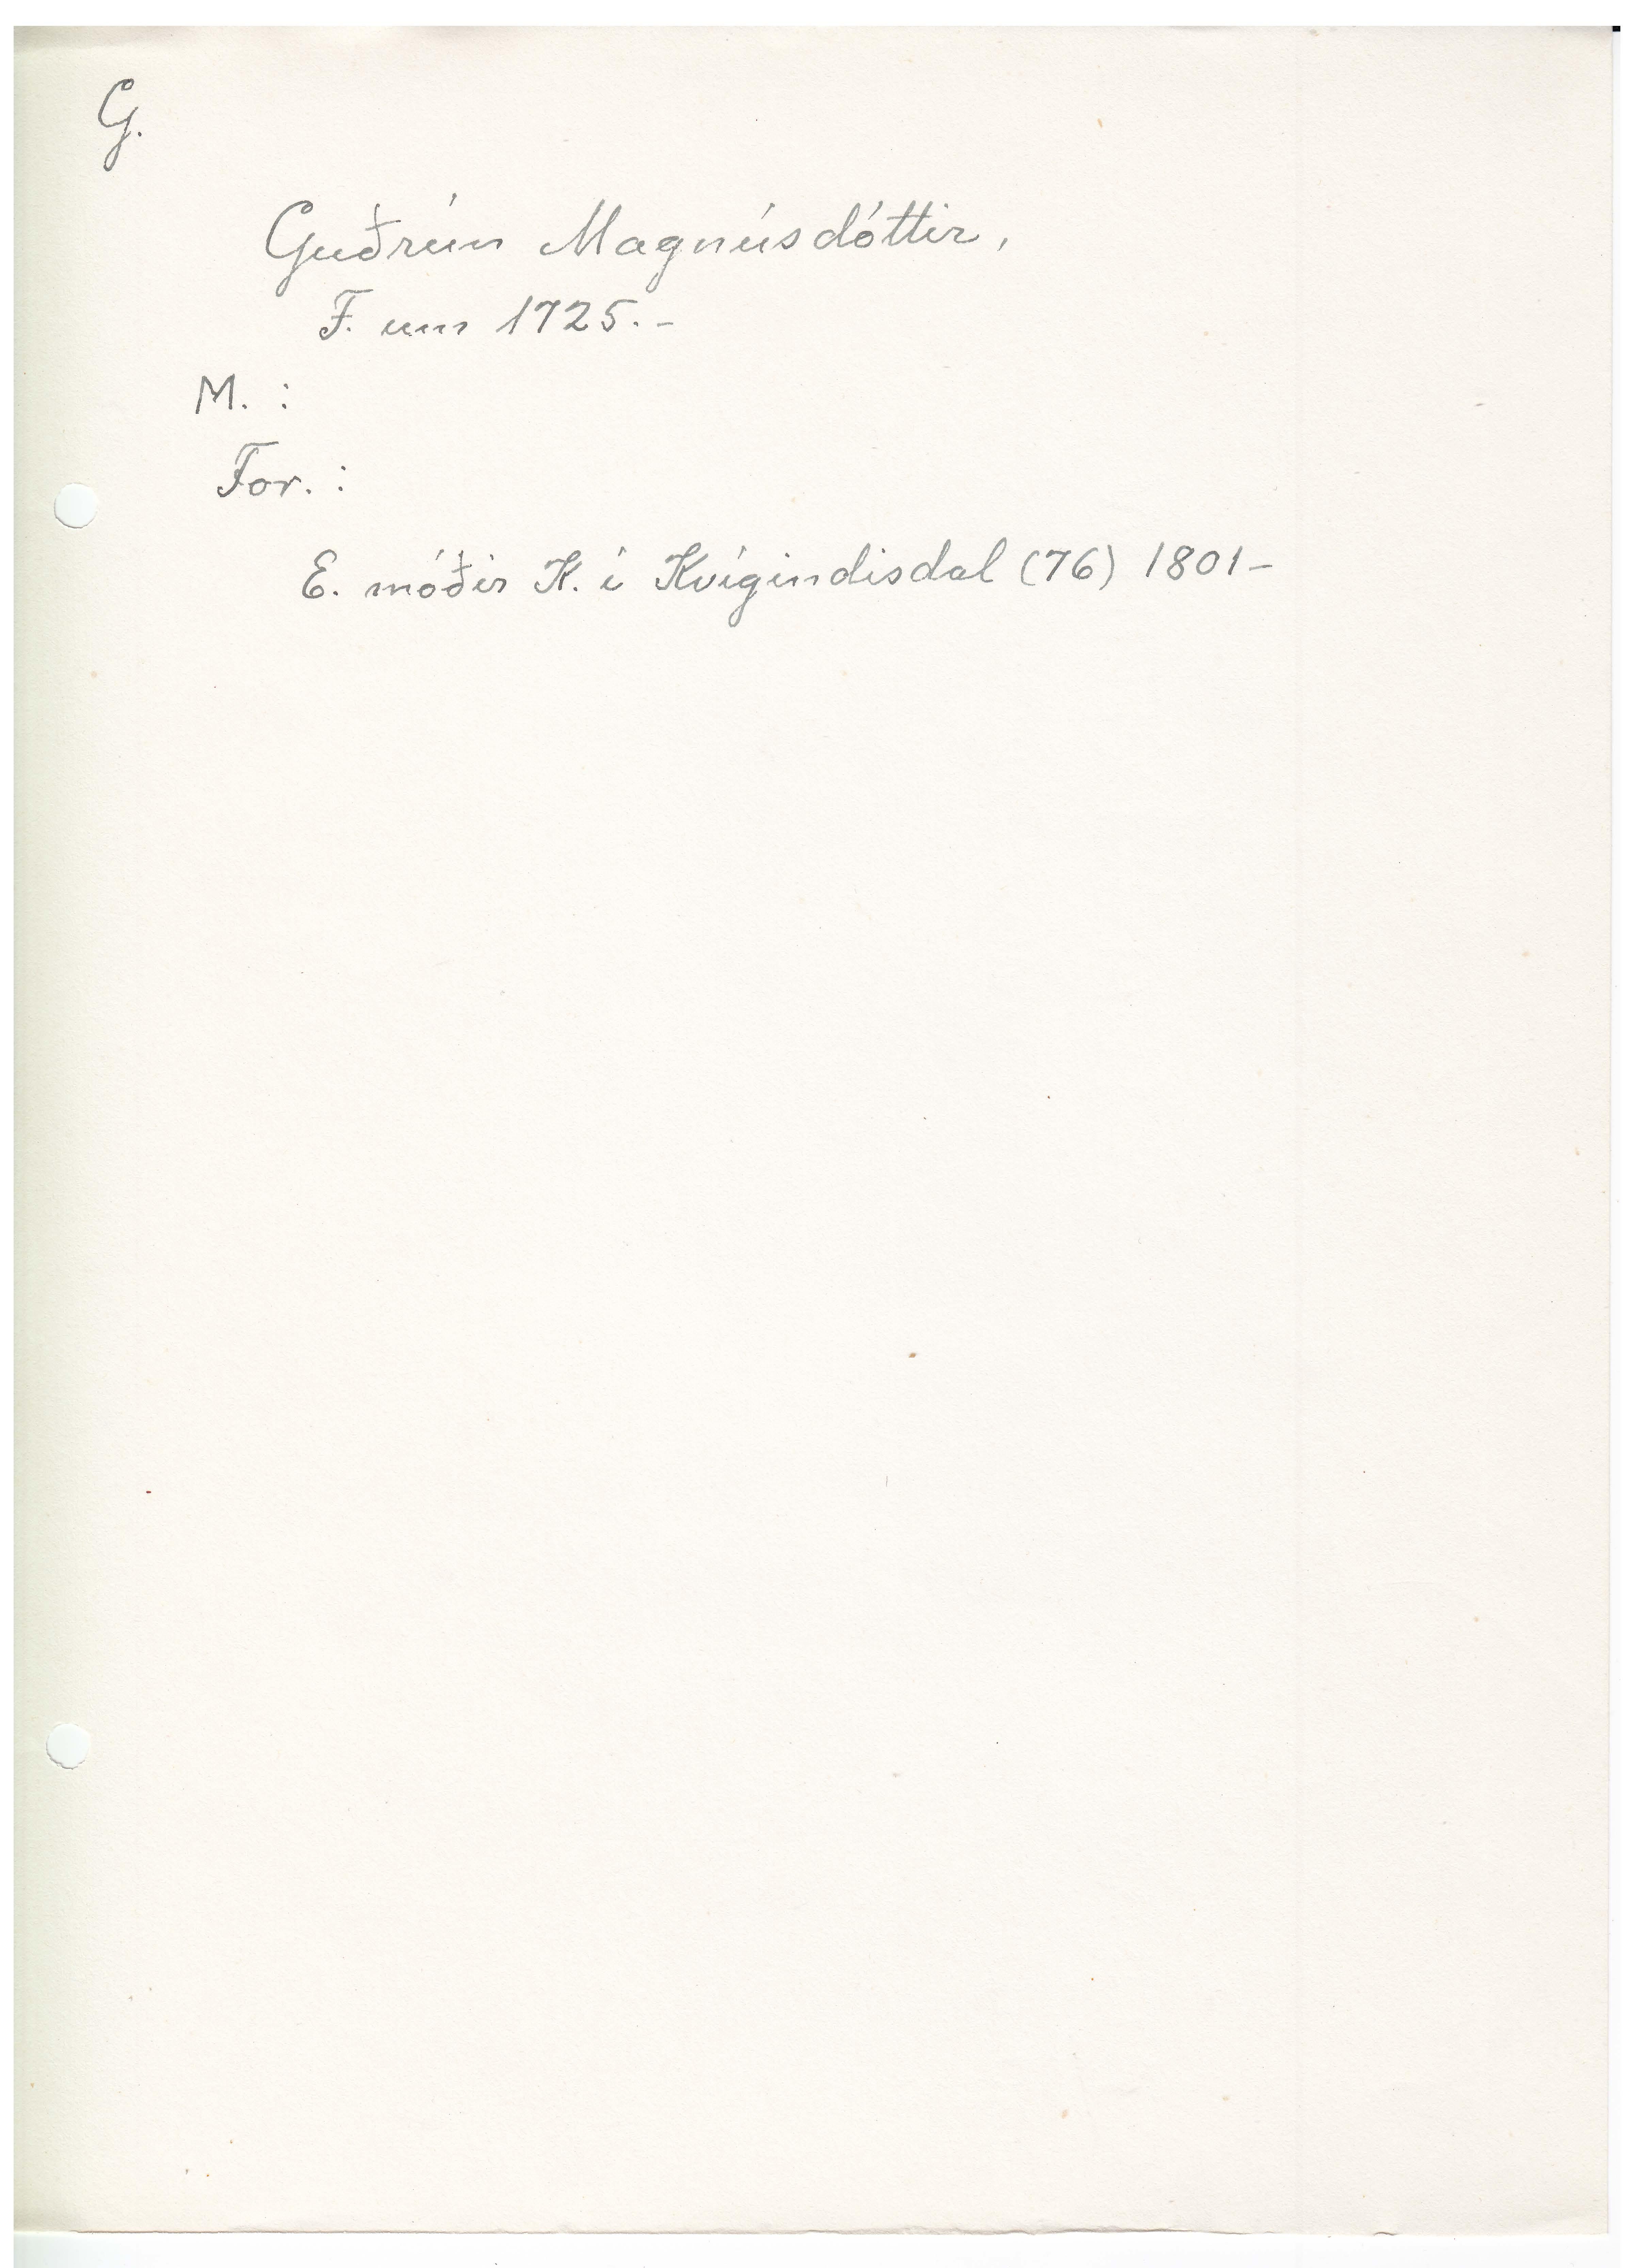 G.
Guðrún Magnúsdóttir,
F. um 1725.-
M. :
For. :
E. móðir K. í Kvígindisdal (76) 1801-